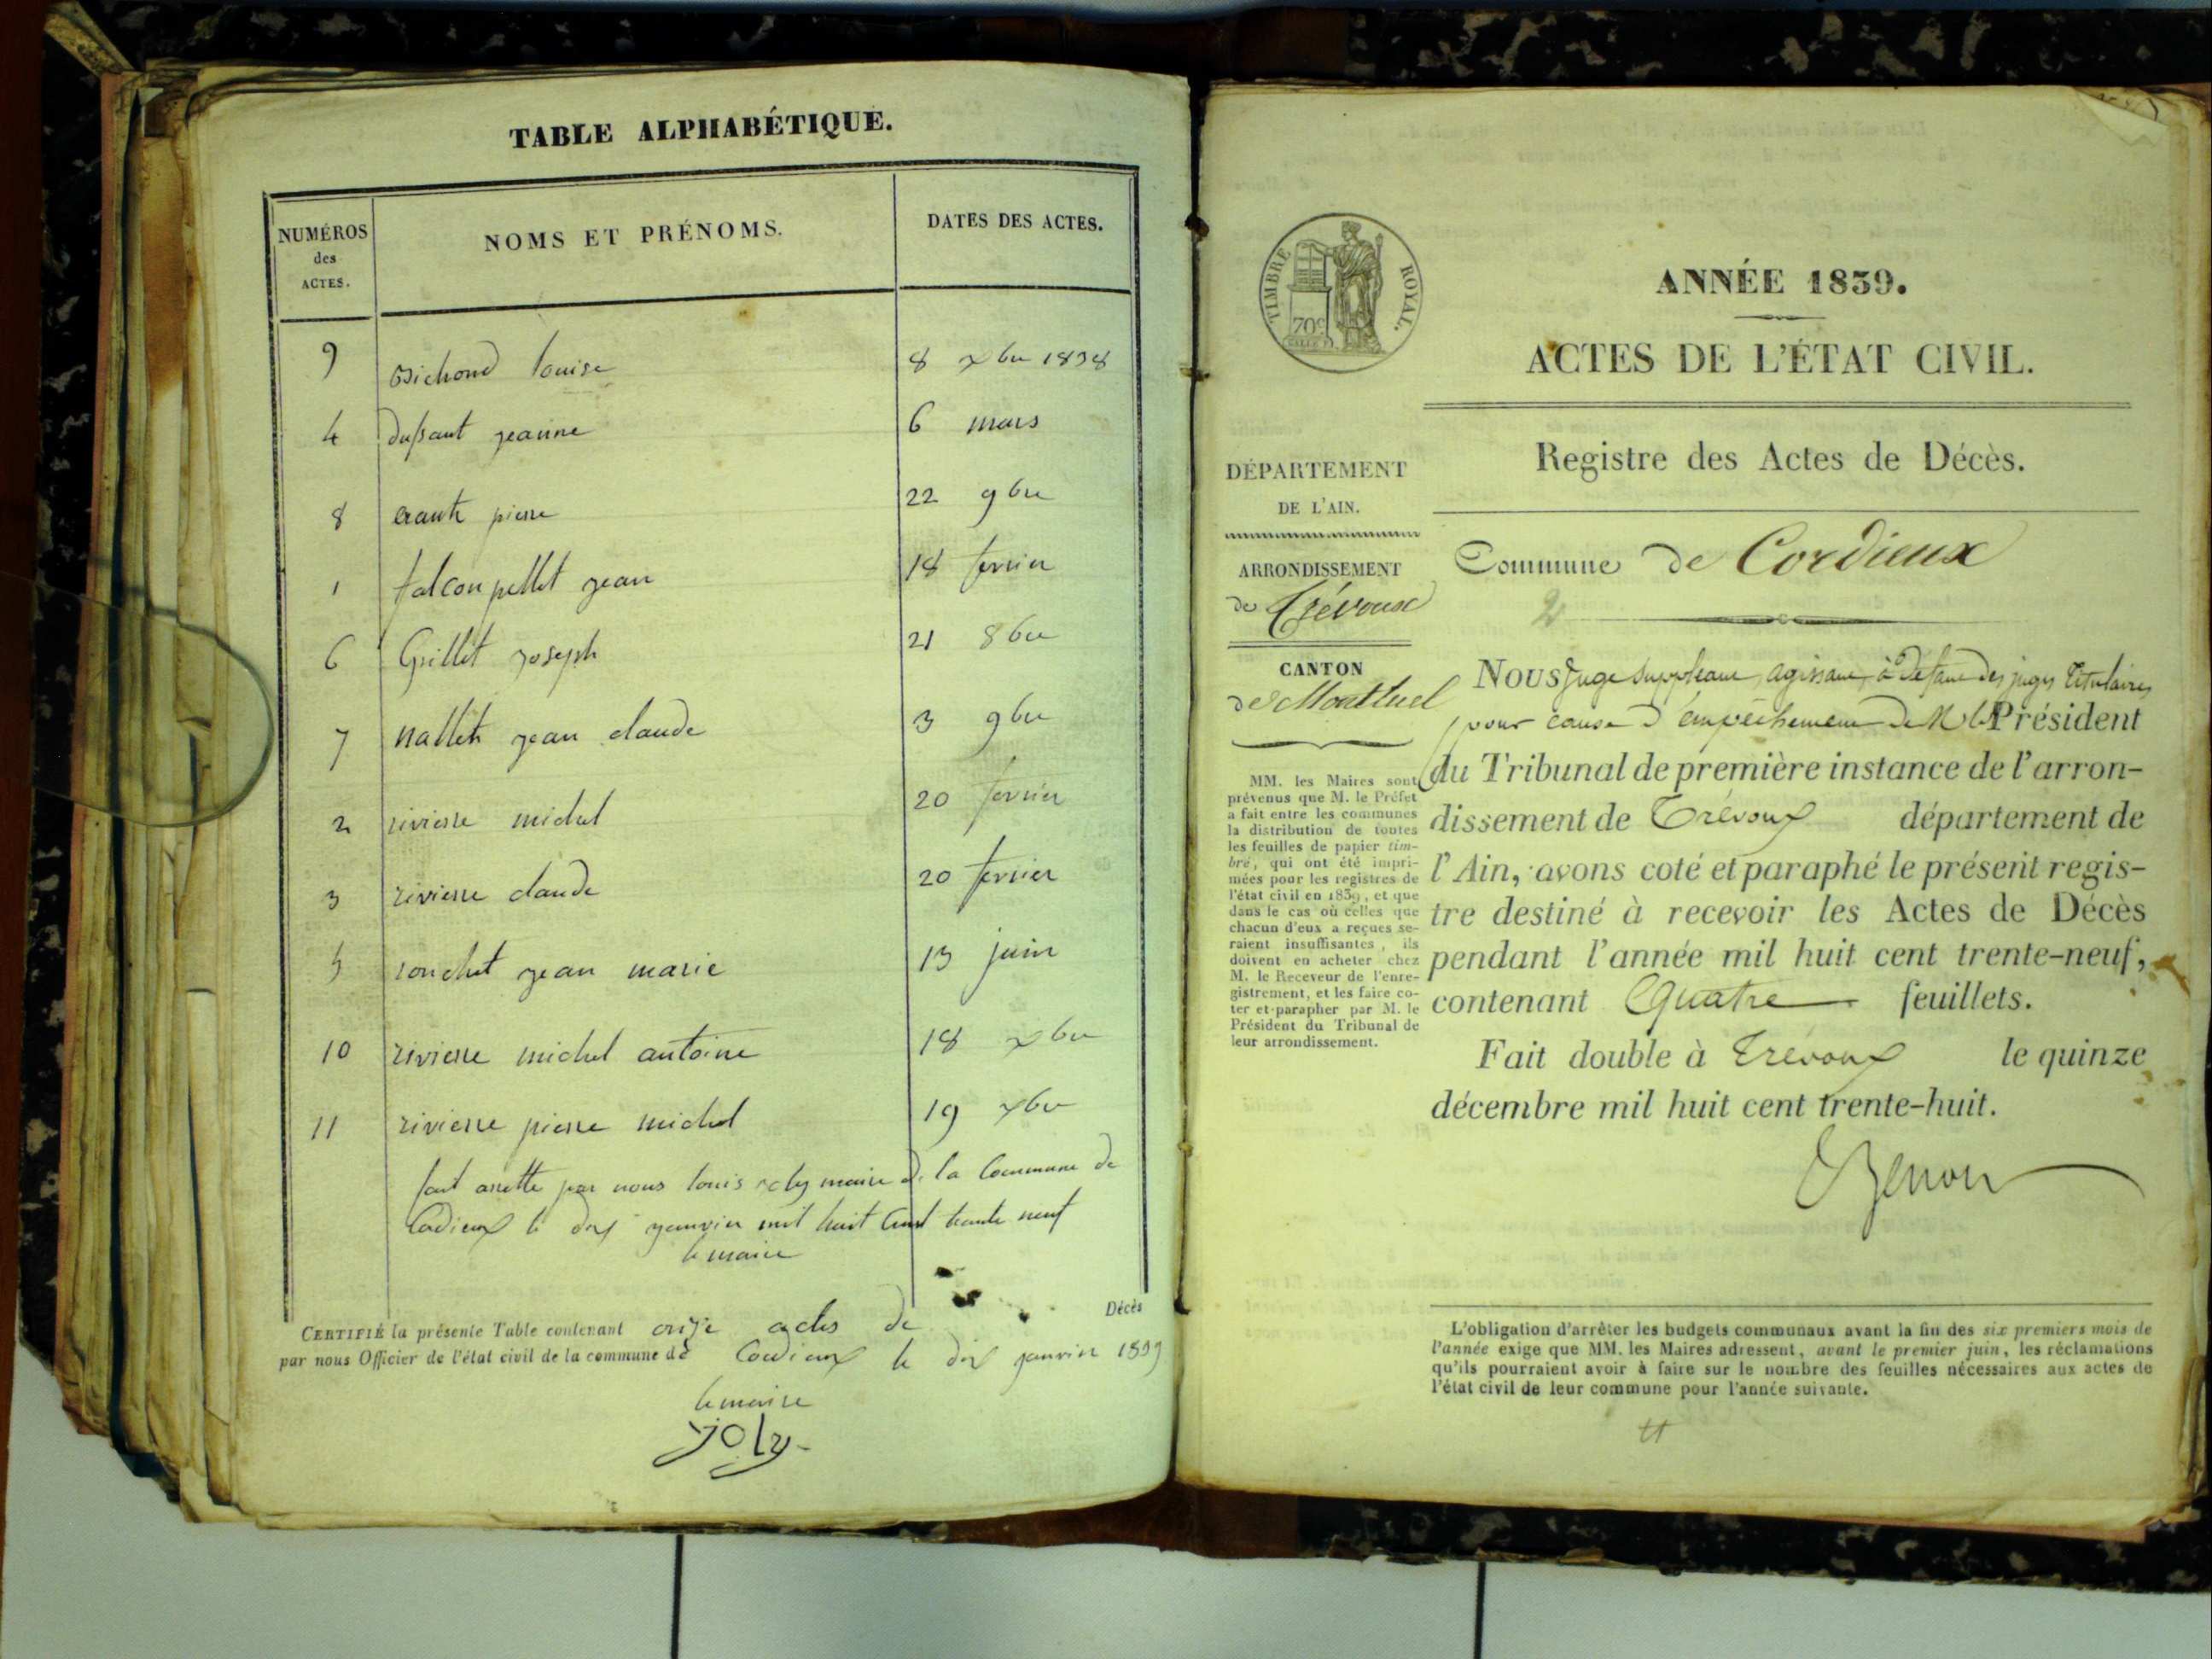 TABLE ALPHABÉTIQUE.
NUMÉROS des ACTES. NOMS ET PRÉNOMS. DATES DES ACTES.
9 Bichond louise 8 xbre 1838
4 dussaut jeanne 6 mars
8 pierre 22 9bre
1 falcon pellet jean 18 fevrier
6 Grillet joseph 21 8bre
7 nallet jean claude 3 9bre
2 rivierre michel 20 fevrier
3 rivierre claude 20 fevrier
5 ronchet jean marie 13 juin
10 rivierre michel antoine 18 xbre
11 rivierre pierre michel 19 xbre
fait arrette par nous louis joly maire de la Commune de
Cordieux le dix janvier mil huit Cent trente neuf
le maire
CERTIFIÉ la présente Table contenant onze actes de Décès
par nous Officier de l'état civil de la commune de Cordieux le dix janvier 1839
le maire
joly
TIMBRE ROYAL.
70c
ANNÉE 1839.
ACTES DE L'ÉTAT CIVIL.
Registre des Actes de Décès.
DÉPARTEMENT
DE L'AIN.
ARRONDISSEMENT
de Trévoux
CANTON
de Montluel
MM. les Maires sont
prévenus que M. le Préfet
a fait entre les communes
la distribution de toutes
les feuilles de papier tim-
bré, qui ont été impri-
mées pour les registres de
l'état civil en 1839, et que
dans le cas où celles que
chacun d'eux a reçues se-
raient insuffisantes, ils
doivent en acheter chez
M. le Receveur de l'enre-
gistrement, et les faire co-
ter et parapher par M. le
Président du Tribunal de
leur arrondissement.
Commune de Cordieux
2
NOUS Juge Suppléant, agissant à Défaut des juges titulaires
pour cause d'empêchement de M. le Président
du Tribunal de première instance de l'arron-
dissement de Trévoux département de
l'Ain, avons coté et paraphé le présent regis-
tre destiné à recevoir les Actes de Décès
pendant l'année mil huit cent trente-neuf,
contenant Quatre feuillets.
Fait double à Trévoux le quinze
décembre mil huit cent trente-huit.
L'obligation d'arrêter les budgets communaux avant la fin des six premiers mois de
l'année exige que MM. les Maires adressent, avant le premier juin, les réclamations
qu'ils pourraient avoir à faire sur le nombre des feuilles nécessaires aux actes de
l'état civil de leur commune pour l'année suivante.